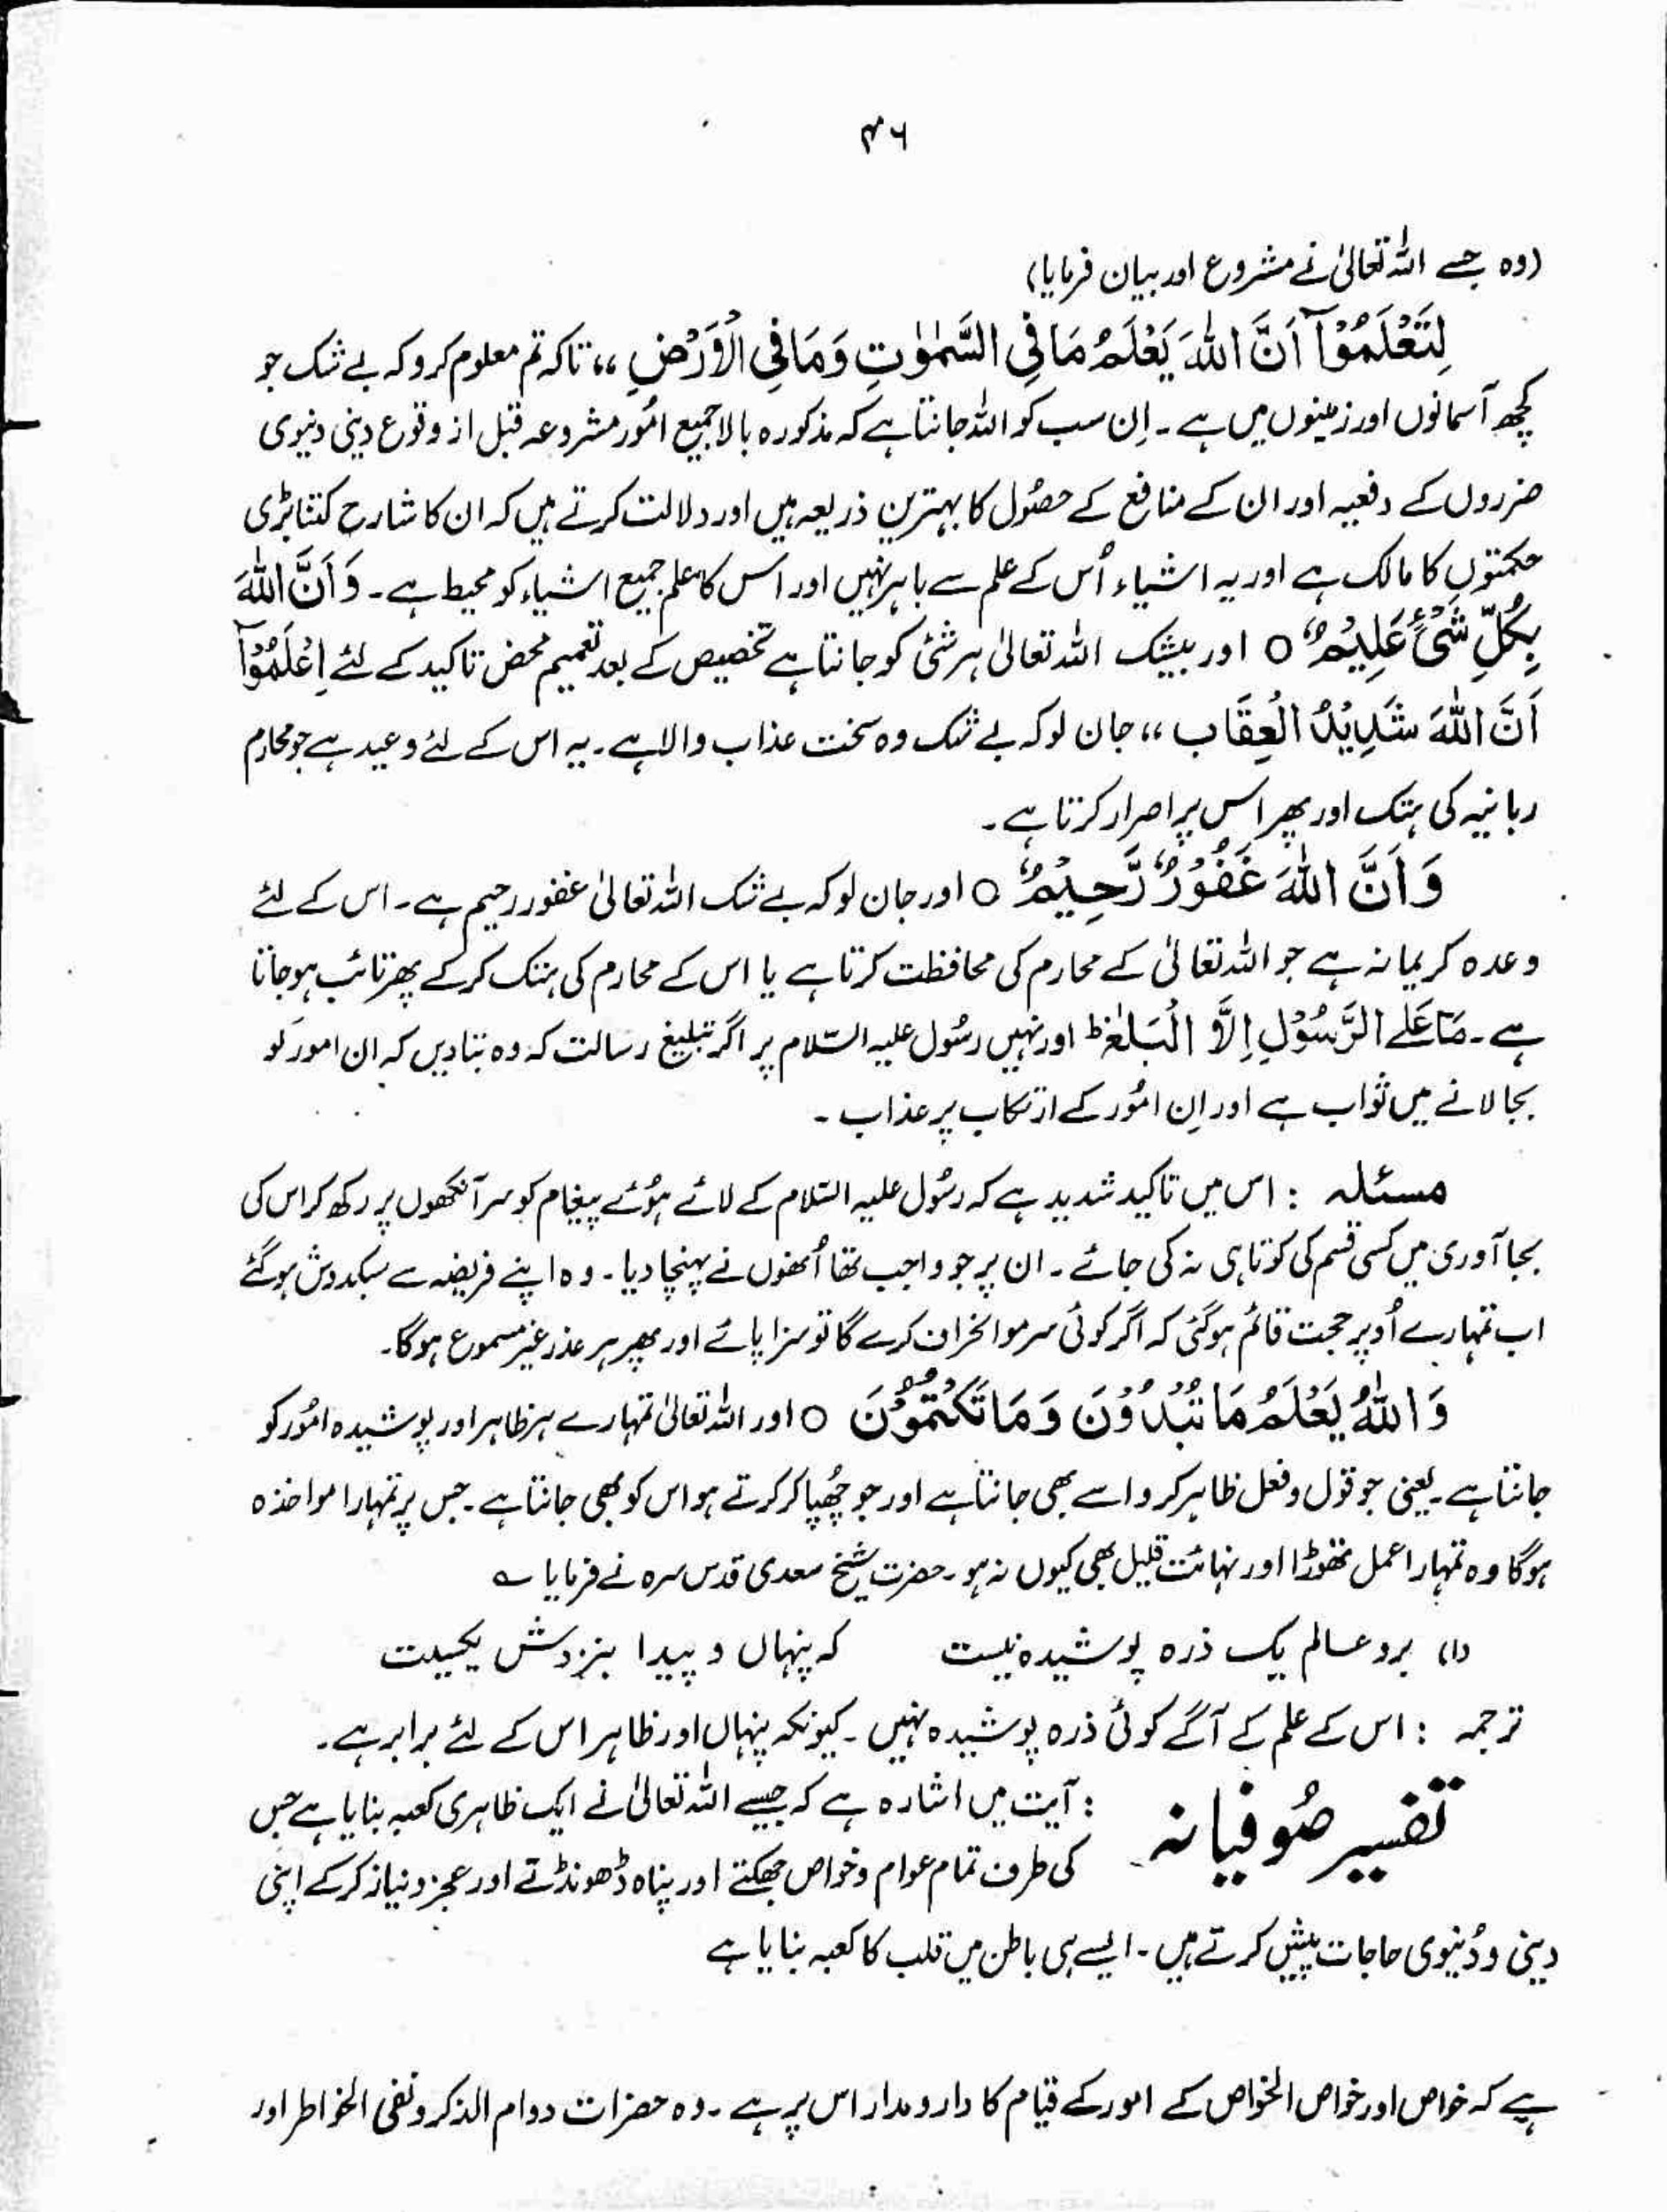 ۴۶
(وہ جسے اللہ تعالیٰ نے مشروع اور بیان فرمایا)
لِتَعْلَمُوْٓا اَنَّ اللهَ يَعْلَمُ مَا فِي السَّمٰوٰتِ وَمَا فِي الْاَرْضِ ،، تاکہ تم معلوم کرو کہ بے شک جو
کچھ آسمانوں اور زمینوں میں ہے ۔ اِن سب کو اللہ جانتا ہے کہ مذکورہ بالا جمیع امُور مشروعہ قبل از وقوع دینی دنیوی
ضرروں کے دفعیہ اور ان کے منافع کے حصُول کا بہترین ذریعہ ہیں اور دلالت کرتے ہیں کہ ان کا شارح کتنا بڑی
حکمتوں کا مالک ہے اور یہ اشیاء اُس کے علم سے باہر نہیں اور اس کا علم جمیع اشیاء کو محیط ہے ۔ وَاَنَّ اللهَ
بِكُلِّ شَيْءٍ عَلِيْمٌ ○ اور بیشک اللہ تعالیٰ ہر شئ کو جانتا ہے تخصیص کے بعد تعمیم محض تاکید کے لئے اِعْلَمُوْٓا
اَنَّ اللهَ شَدِيْدُ الْعِقَاب ،، جان لو کہ بے شک وہ سخت عذاب والا ہے ۔ یہ اس کے لئے وعید ہے جو محارم
ربانیہ کی ہتک اور پھر اس پر اصرار کرتا ہے ۔
وَاَنَّ اللهَ غَفُوْرٌ رَّحِيْمٌ ○ اور جان لو کہ بے شک اللہ تعالیٰ غفور رحیم ہے ۔ اس کے لئے
وعدہ کریمانہ ہے جو اللہ تعالیٰ کے محارم کی محافظت کرتا ہے یا اس کے محارم کی ہتک کرکے پھر تائب ہو جاتا
ہے ۔ مَا عَلَے الرَّسُوْلِ اِلَّا الْبَلٰغُ ط اور نہیں رسُول علیہ السّلام پر اگر تبلیغ رسالت کہ وہ بتا دیں کہ ان امور کو
بجا لانے میں ثواب ہے اور اِن امُور کے ارتکاب پر عذاب ۔
مسئلہ : اس میں تاکید شدید ہے کہ رسُول علیہ السّلام کے لائے ہوُئے پیغام کو سر آنکھوں پر رکھ کر اس کی
بجا آوری میں کسی قسم کی کوتاہی نہ کی جائے ۔ ان پر جو واجب تھا اُنھوں نے پہنچا دیا ۔ وہ اپنے فریضہ سے سبکدوش ہو گئے
اب تمہارے اُوپر حجت قائم ہو گئی کہ اگر کوئی سرمو انحراف کرے گا تو سزا پائے اور پھر ہر عذر غیر مسموع ہو گا۔
وَاللهُ يَعْلَمُ مَا تُبْدُوْنَ وَمَا تَكْتُمُوْنَ ○ اور اللہ تعالیٰ تمہارے ہر ظاہر اور پوشیدہ امُور کو
جانتا ہے ۔ یعنی جو قول و فعل ظاہر کرو اسے بھی جانتا ہے اور جو چُھپا کر کرتے ہو اس کو بھی جانتا ہے ۔ جس پر تمہارا مواخذہ
ہو گا وہ تمہارا عمل تھوڑا اور نہائت قلیل بھی کیوں نہ ہو ۔ حضرت شیخ سعدی قدس سرہ نے فرمایا ؎
(۱) برو عالم یک ذرہ پوشیدہ نیست کہ پنہاں و پیدا بنزدش یکیست
ترجمہ : اس کے علم کے آگے کوئی ذرہ پوشیدہ نہیں ۔ کیونکہ پنہاں اور ظاہر اس کے لئے برابر ہے ۔
تفسیر صُوفیانہ : آیت میں اشارہ ہے کہ جیسے اللہ تعالیٰ نے ایک ظاہری کعبہ بنایا ہے جس
کی طرف تمام عوام و خواص جھکتے اور پناہ ڈھونڈتے اور عجز و نیاز کرکے اپنی
دینی و دُنیوی حاجات پیش کرتے ہیں ۔ ایسے ہی باطن میں قلب کا کعبہ بنایا ہے
ہے کہ خواص اور خواص الخواص کے امور کے قیام کا دارومدار اس پر ہے ۔ وہ حضرات دوام الذکر و نفی الخواطر اور